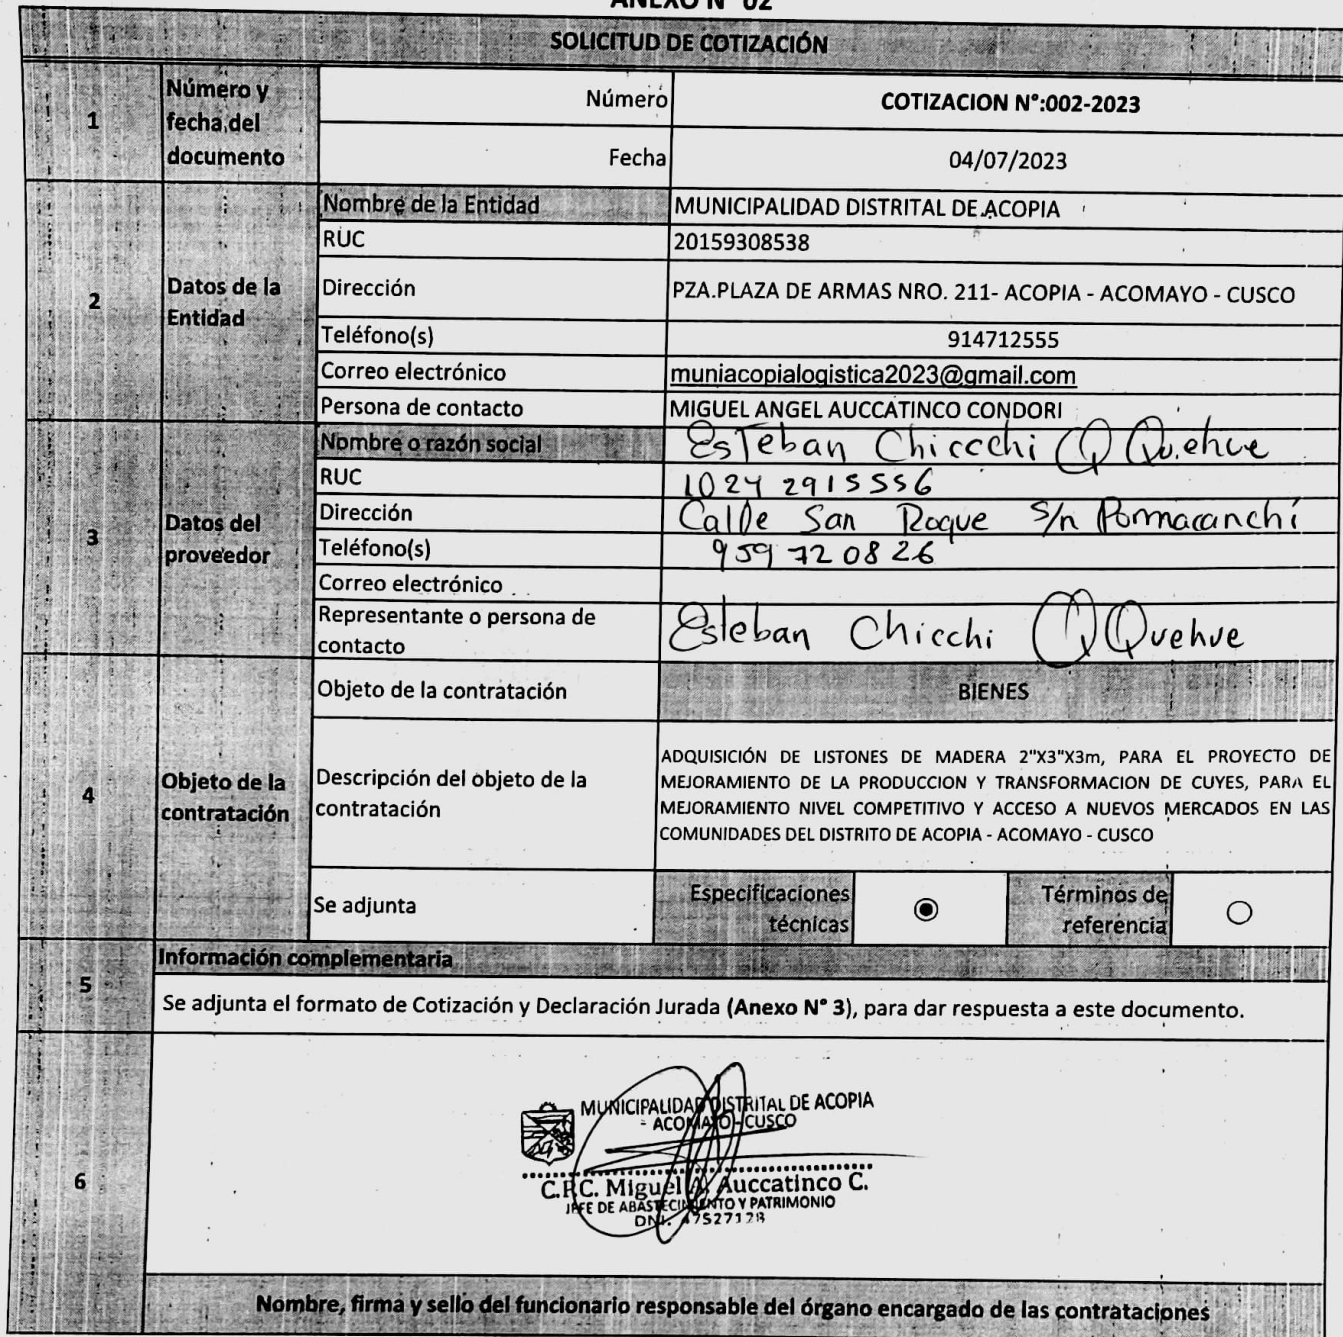 ANEXO N° 02
SOLICITUD DE COTIZACIÓN
1
Número y
fecha del
documento
Número
COTIZACION N°:002-2023
Fecha
04/07/2023
2
Datos de la
Entidad
Nombre de la Entidad
MUNICIPALIDAD DISTRITAL DE ACOPIA
RUC
20159308538
Dirección
PZA.PLAZA DE ARMAS NRO. 211- ACOPIA - ACOMAYO - CUSCO
Teléfono(s)
914712555
Correo electrónico
muniacopialogistica2023@gmail.com
Persona de contacto
MIGUEL ANGEL AUCCATINCO CONDORI
3
Datos del
proveedor
Nombre o razón social
Esteban Chiccchi Quehue
RUC
1024 2915556
Dirección
Calle San Roque S/n Pomacanchi
Teléfono(s)
959 720826
Correo electrónico
Representante o persona de
contacto
Esteban Chicchi Quehue
4
Objeto de la
contratación
Objeto de la contratación
BIENES
Descripción del objeto de la
contratación
ADQUISICIÓN DE LISTONES DE MADERA 2"X3"X3m, PARA EL PROYECTO DE
MEJORAMIENTO DE LA PRODUCCION Y TRANSFORMACION DE CUYES, PARA EL
MEJORAMIENTO NIVEL COMPETITIVO Y ACCESO A NUEVOS MERCADOS EN LAS
COMUNIDADES DEL DISTRITO DE ACOPIA - ACOMAYO - CUSCO
Se adjunta
Especificaciones
técnicas
Términos de
referencia
5
Información complementaria
Se adjunta el formato de Cotización y Declaración Jurada (Anexo N° 3), para dar respuesta a este documento.
6
MUNICIPALIDAD DISTRITAL DE ACOPIA
- ACOMAYO - CUSCO
C.P.C. Miguel A. Auccatinco C.
JEFE DE ABASTECIMIENTO Y PATRIMONIO
DNI. 47527128
Nombre, firma y sello del funcionario responsable del órgano encargado de las contrataciones